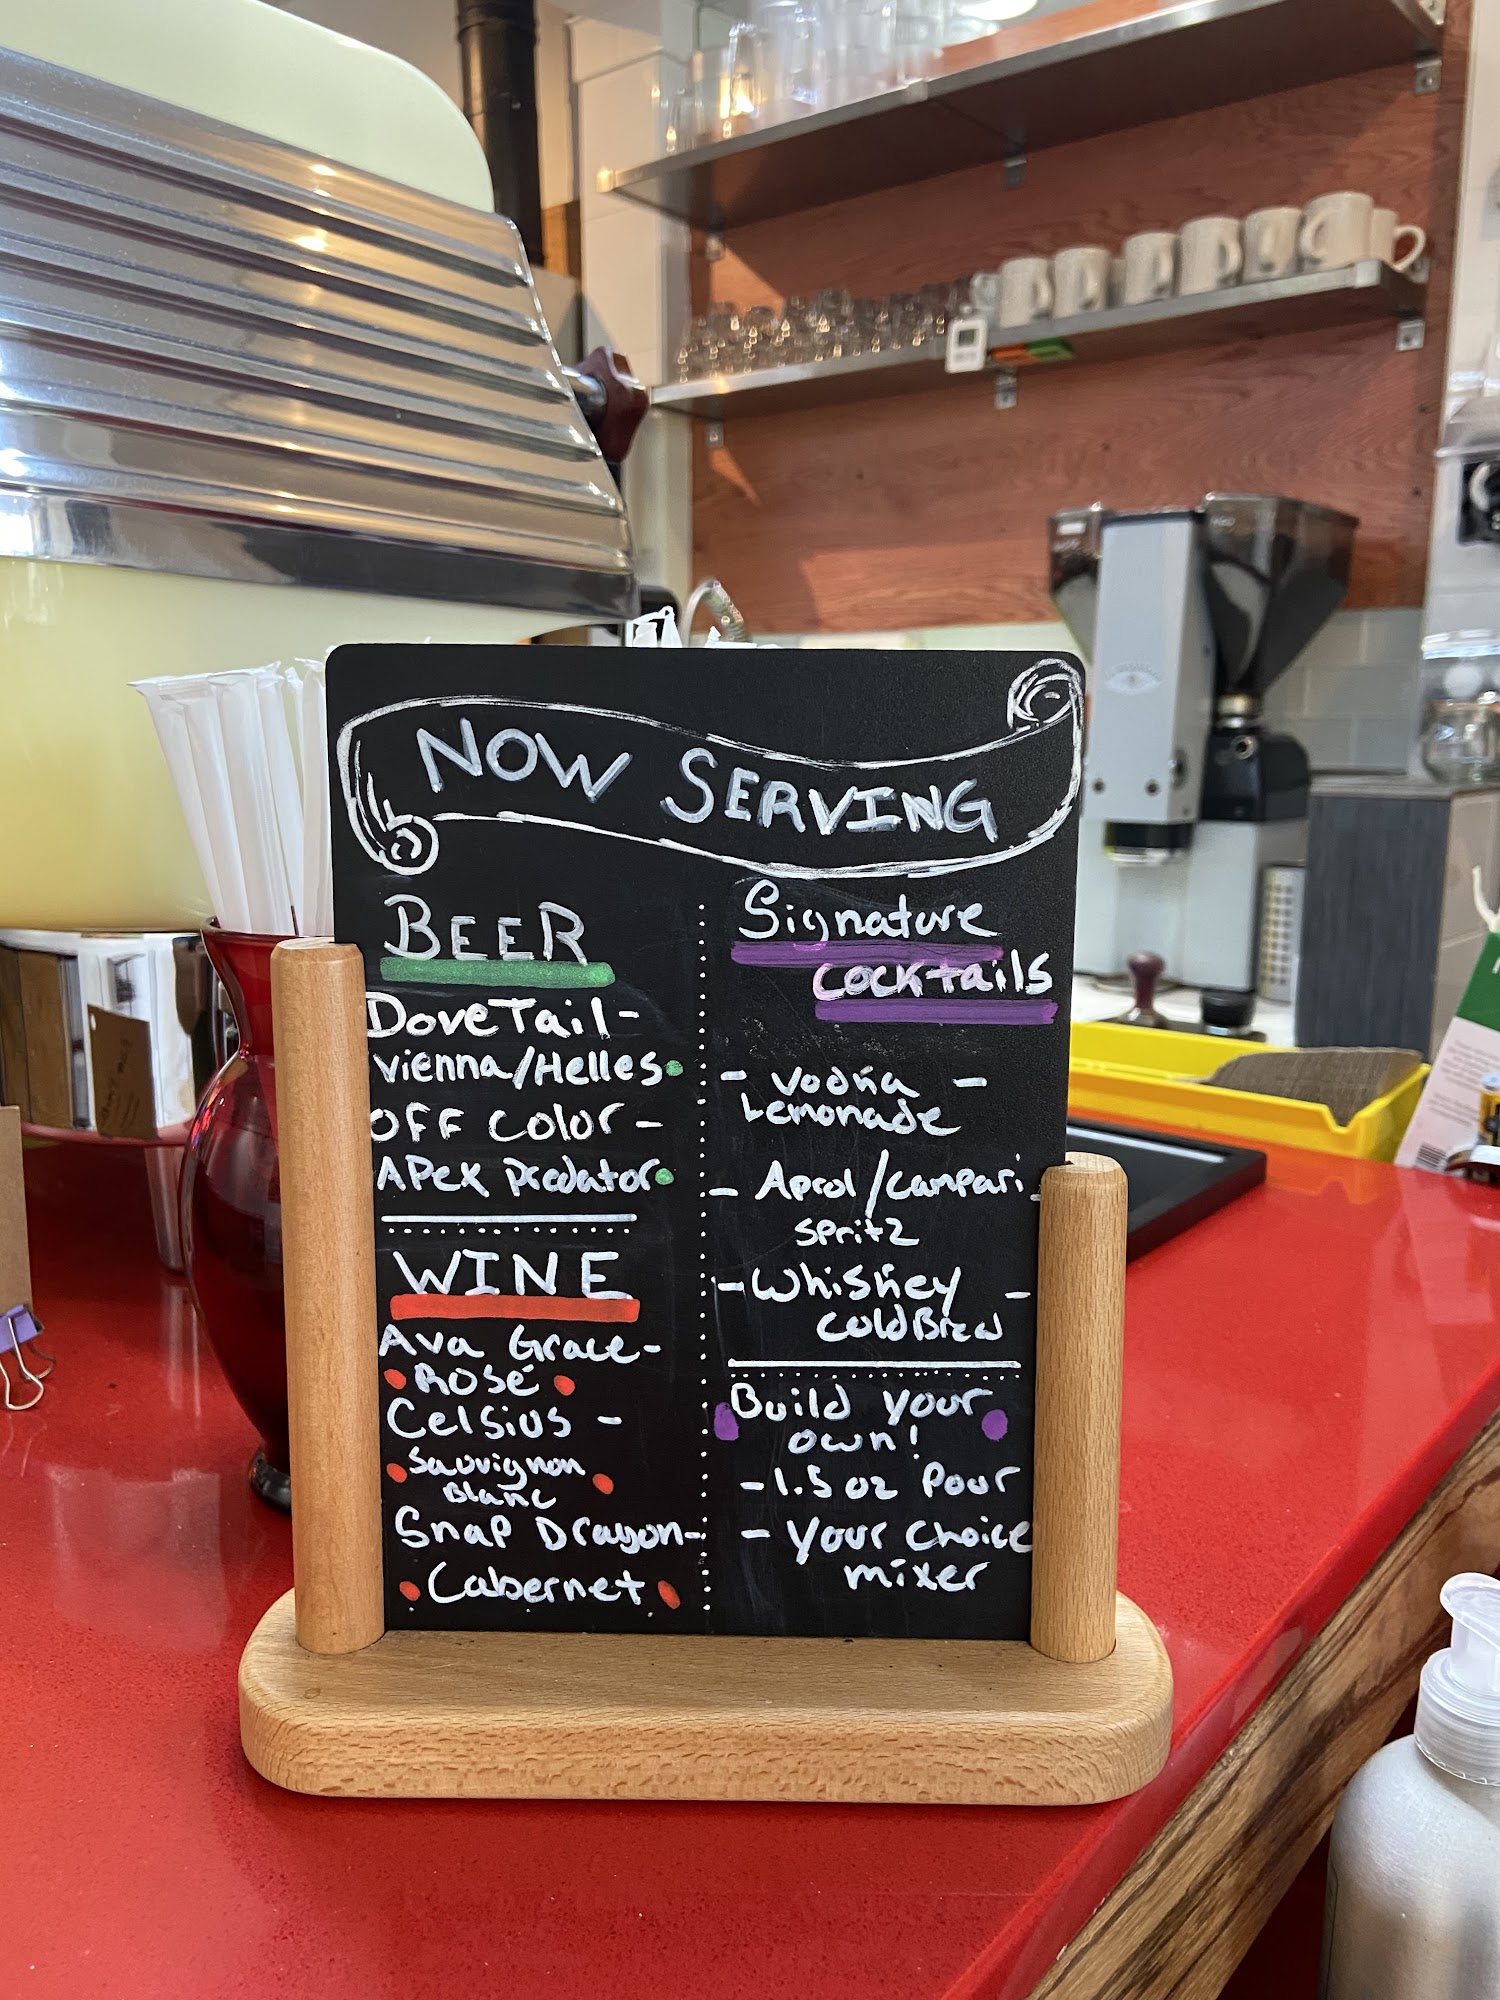 NOW SERVING
BEER
DoveTail-
Vienna/Helles
OFF Color -
APex Predator
WINE
Ava Grace-
Rosé
Celsius -
Sauvignon
Blanc
Snap Dragon-
Cabernet
Signature
Cocktails
- Vodka -
Lemonade
- Aprol/Campari -
Spritz
- Whiskey -
Cold Brew
Build your
own!
- 1.5 oz Pour
- Your Choice
mixer